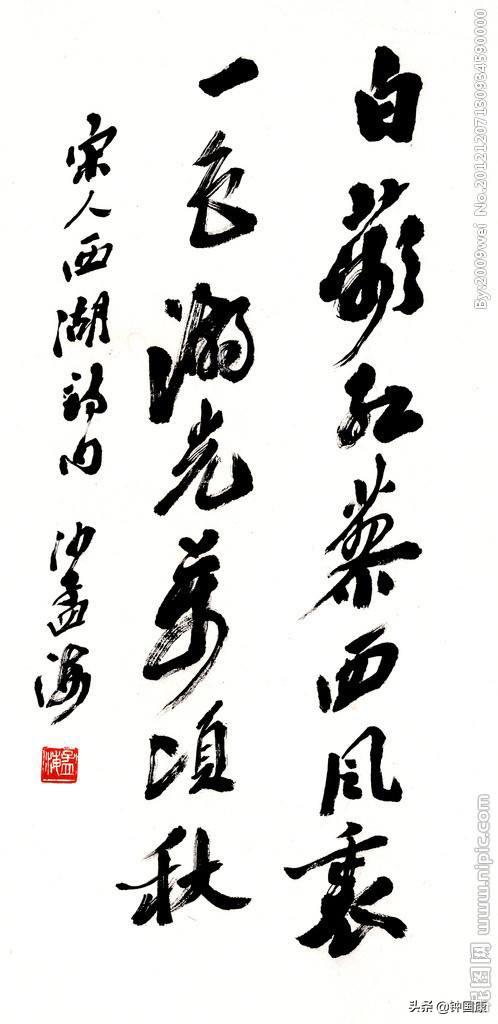 白蘋紅蓼西风裏
一色湖光萬頃秋
宋人西湖詩句 沙孟海
孟海
By:2009wei No.20121207130934590000
昵图网 www.nipic.com
头条 @钟国康